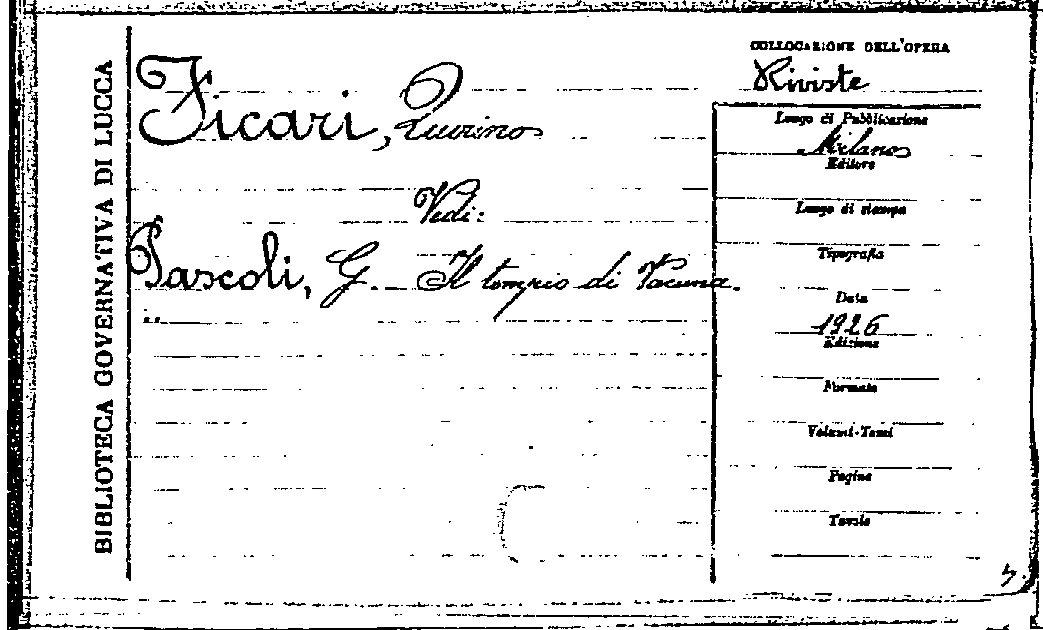 BIBLIOTECA GOVERNATIVA DI LUCCA
Ficari, Quirino
Vedi:
Pascoli, G. - Il tempio di Vacuna.
COLLOCAZIONE DELL'OPERA
Riviste
Luogo di Pubblicazione
Milano
Editore
Luogo di stampa
Tipografia
Data
1926
Edizione
Formato
Volumi-Tomi
Pagine
Tavole